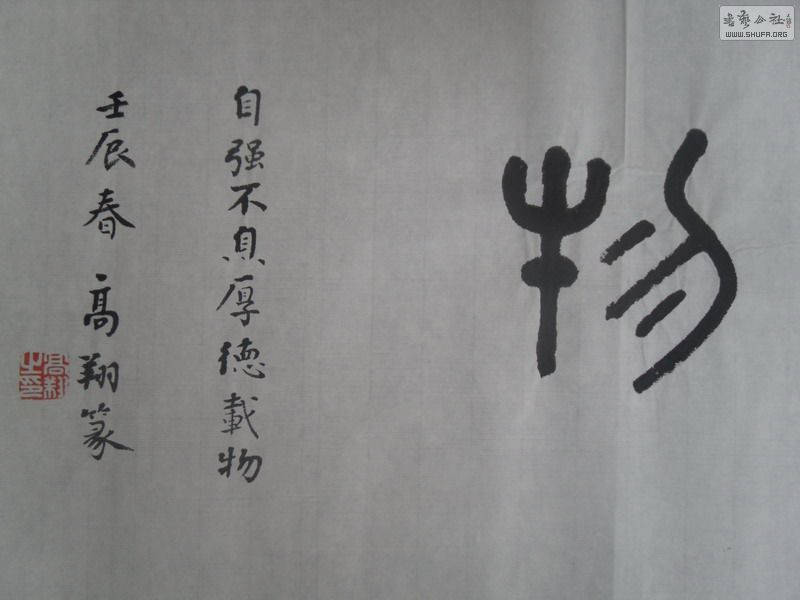 物
自强不息厚德載物
壬辰春高翔篆
高翔之印
書藝公社
WWW.SHUFA.ORG